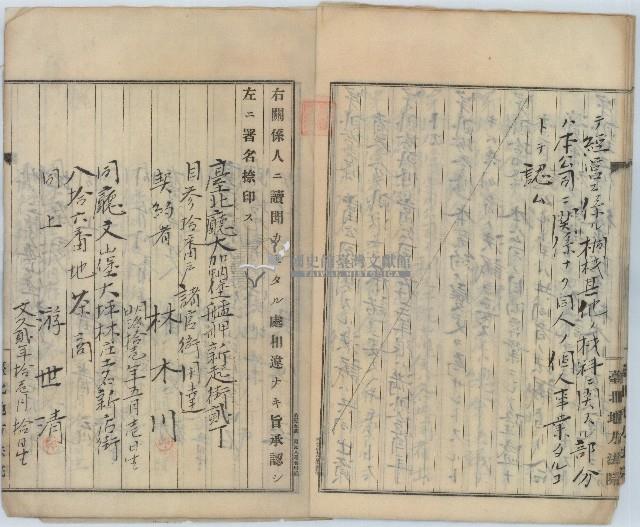 テ經營ニ係ル桐材其他ノ材料ニ関スル部分
ハ本公司ニ関係ナク同人ノ個人事業タルコ
トヲ認ム
臺北地方法院
右關係人ニ讀聞カセタル處相違ナキ旨承認シ
左ニ署名捺印ス
臺北廳大加蚋堡艋舺新起街貳丁
目参拾番戸諸官衙用達
契約者 林木川
明治拾壱年五月壱日生
同廳文山堡大坪林庄土名新店街
八拾六番地茶商
同上 游世清
文久貳年拾壱月拾日生
國史館臺灣文獻館
TAIWAN HISTORICA